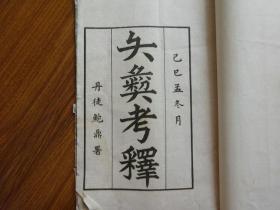 己巳孟冬月
夨彝考釋
丹徒鮑鼎署